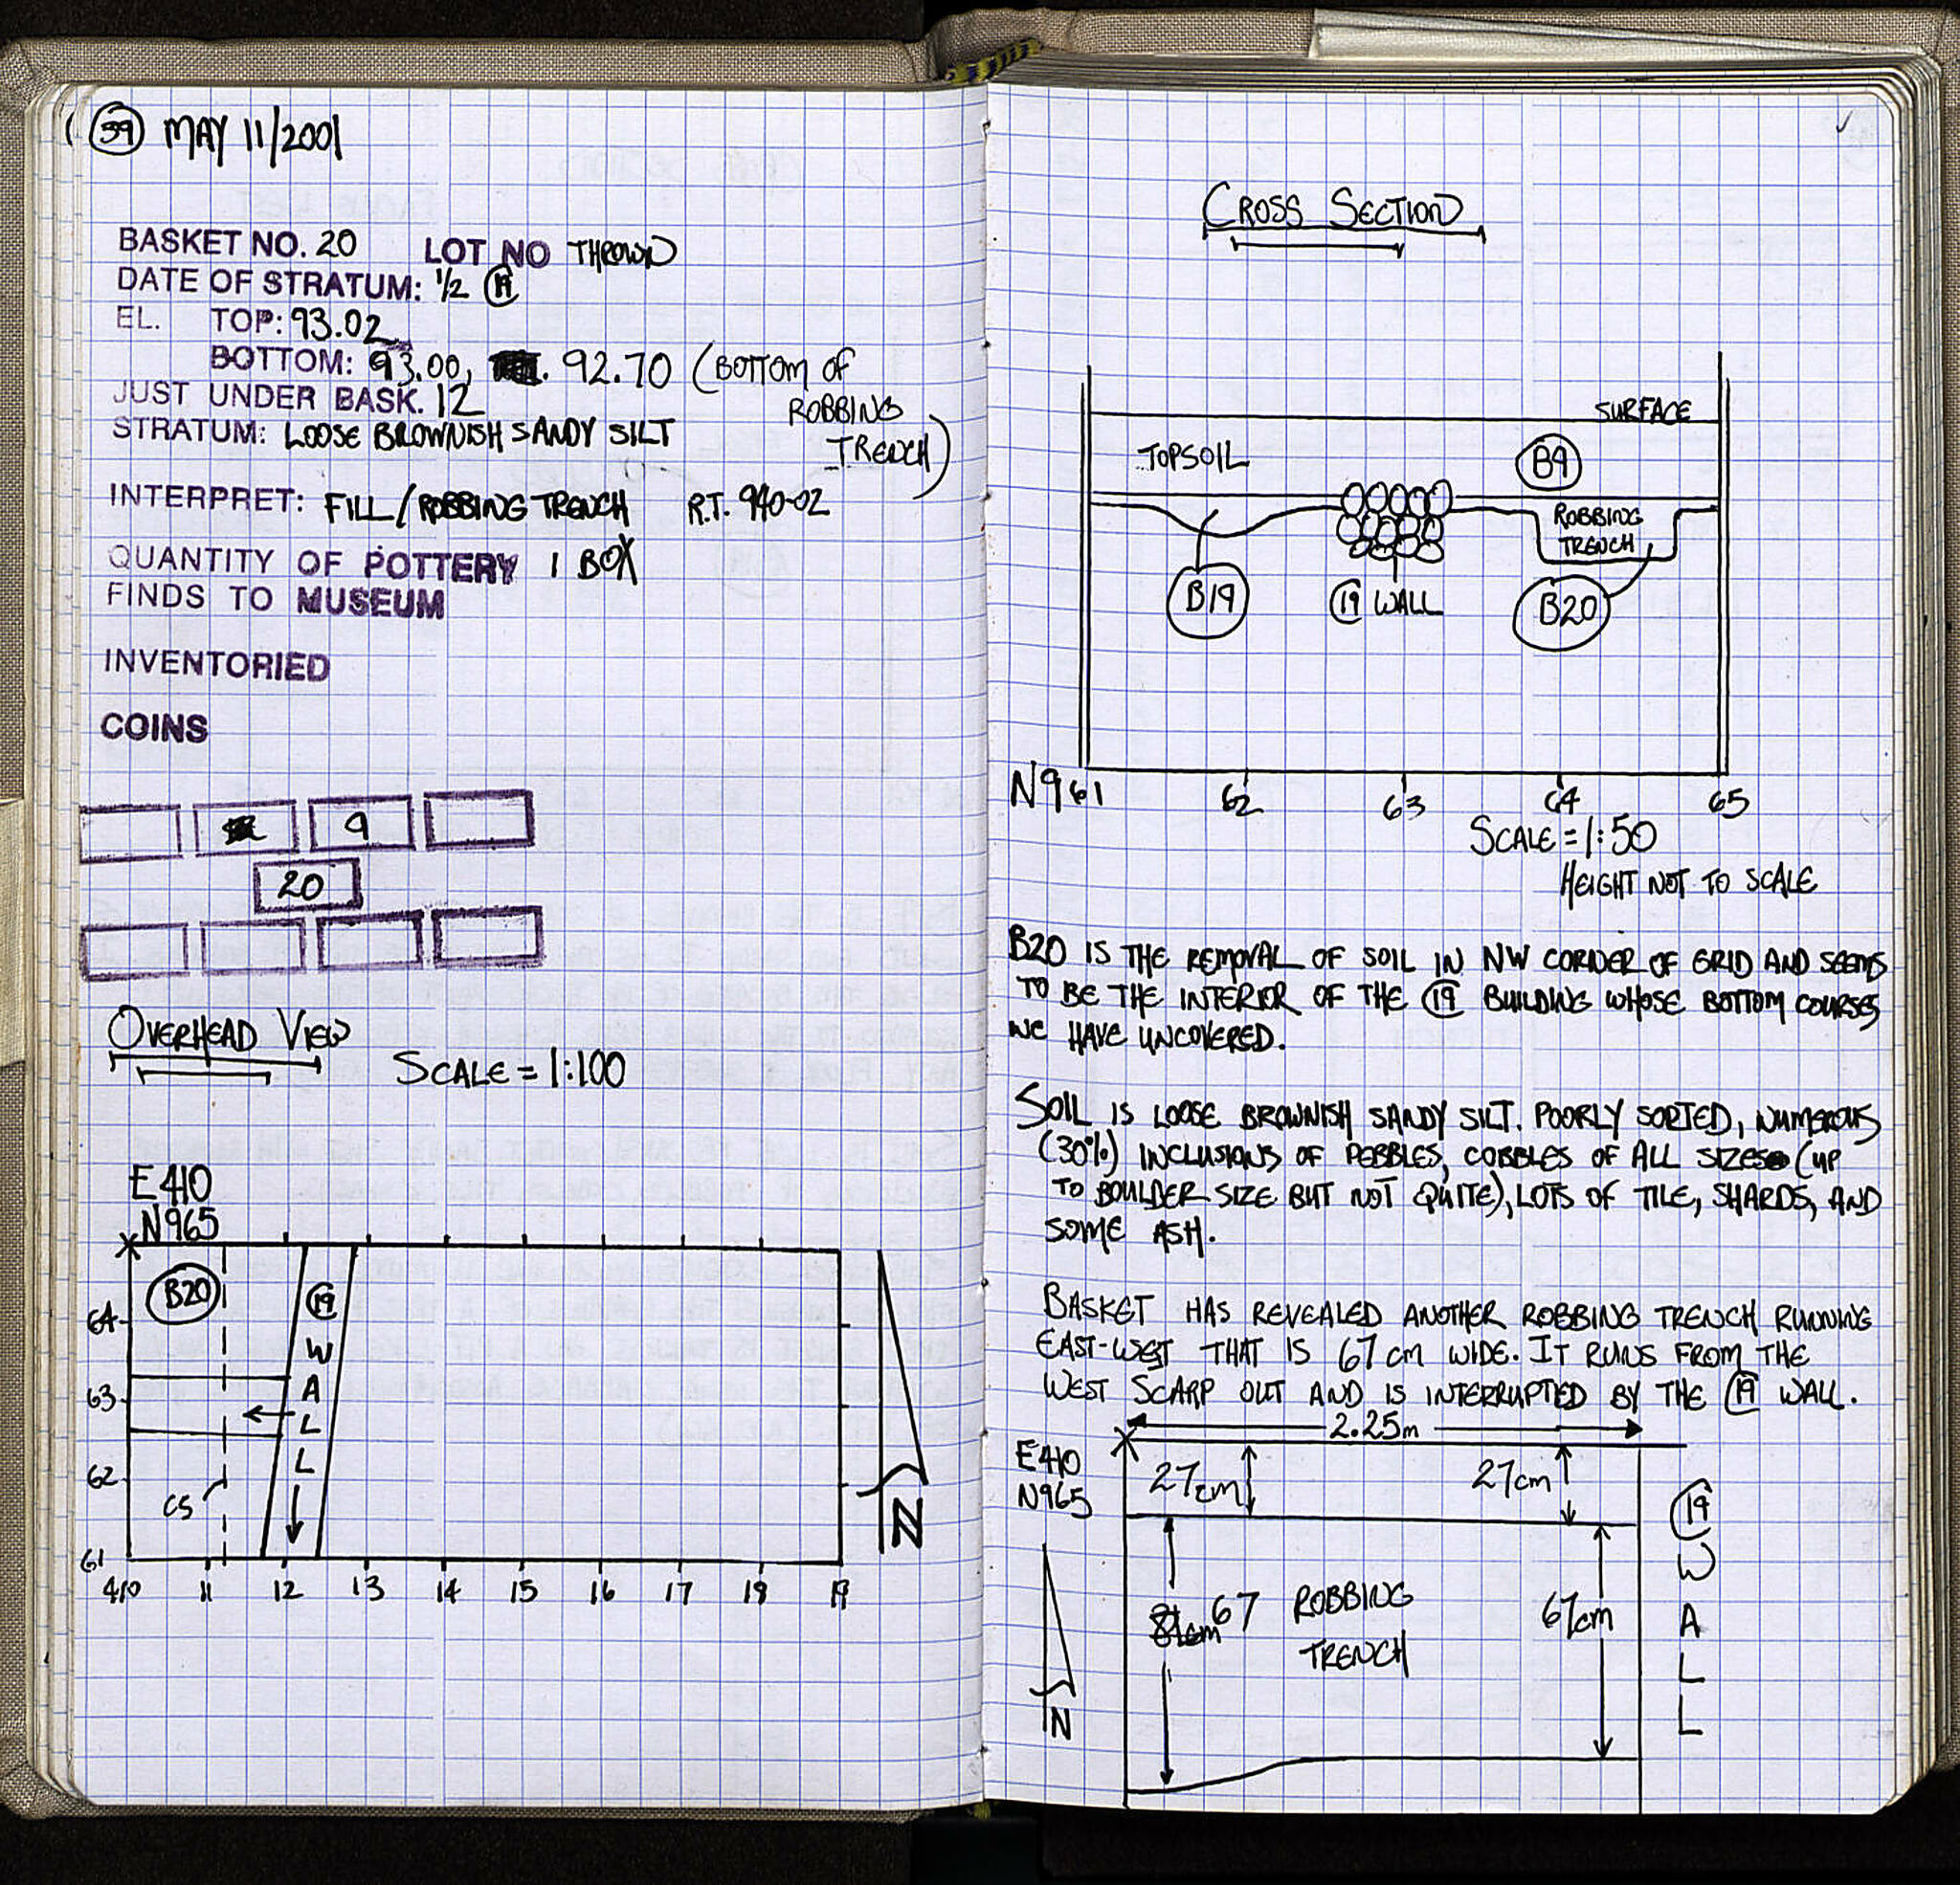 39 MAY 11/2001
BASKET NO. 20 LOT NO THROWN
DATE OF STRATUM: 1/2 19
EL. TOP: 93.02
BOTTOM: 93.00, 92.70 (BOTTOM OF
ROBBING
TRENCH)
JUST UNDER BASK. 12
STRATUM: LOOSE BROWNISH SANDY SILT
INTERPRET: FILL/ROBBING TRENCH R.T. 940-02
QUANTITY OF POTTERY 1 BOX
FINDS TO MUSEUM
INVENTORIED
COINS
9
20
OVERHEAD VIEW
SCALE = 1:100
E410
N965
B20
19
W
A
L
L
64
63
62
61
CS
N
410 11 12 13 14 15 16 17 18 19
CROSS SECTION
SURFACE
TOPSOIL
B9
ROBBING
TRENCH
B19
19 WALL
B20
N961 62 63 64 65
SCALE = 1:50
HEIGHT NOT TO SCALE
B20 IS THE REMOVAL OF SOIL IN NW CORNER OF GRID AND SEEMS
TO BE THE INTERIOR OF THE 19 BUILDING WHOSE BOTTOM COURSES
WE HAVE UNCOVERED.
SOIL IS LOOSE BROWNISH SANDY SILT. POORLY SORTED, NUMEROUS
(30%) INCLUSIONS OF PEBBLES, COBBLES OF ALL SIZES (UP
TO BOULDER SIZE BUT NOT QUITE), LOTS OF TILE, SHARDS, AND
SOME ASH.
BASKET HAS REVEALED ANOTHER ROBBING TRENCH RUNNING
EAST-WEST THAT IS 67 cm WIDE. IT RUNS FROM THE
WEST SCARP OUT AND IS INTERRUPTED BY THE 19 WALL.
2.25m
E410
N965
27cm
27cm
19
W
A
L
L
67
ROBBING
TRENCH
67cm
N